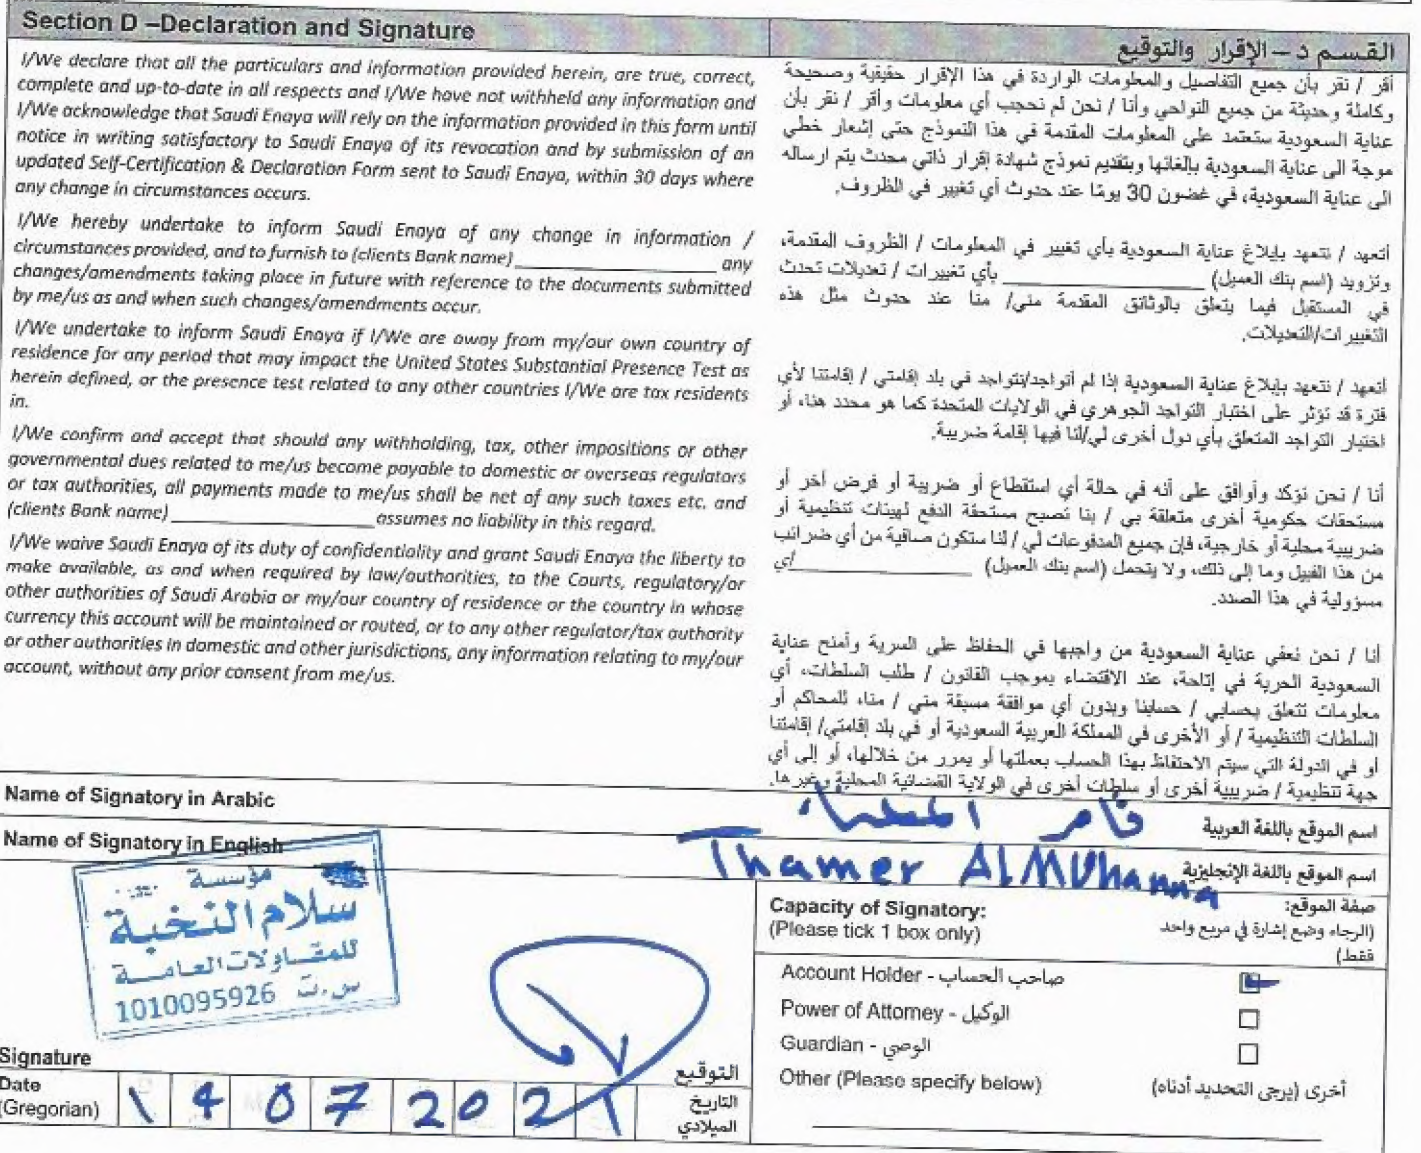 Section D –Declaration and Signature
القسم د – الإقرار والتوقيع
I/We declare that all the particulars and information provided herein, are true, correct,
complete and up-to-date in all respects and I/We have not withheld any information and
I/We acknowledge that Saudi Enaya will rely on the information provided in this form until
notice in writing satisfactory to Saudi Enaya of its revocation and by submission of an
updated Self-Certification & Declaration Form sent to Saudi Enaya, within 30 days where
any change in circumstances occurs.
I/We hereby undertake to inform Saudi Enaya of any change in information /
circumstances provided, and to furnish to (clients Bank name) ____________________ any
changes/amendments taking place in future with reference to the documents submitted
by me/us as and when such changes/amendments occur.
I/We undertake to inform Saudi Enaya if I/We are away from my/our own country of
residence for any period that may impact the United States Substantial Presence Test as
herein defined, or the presence test related to any other countries I/We are tax residents
in.
I/We confirm and accept that should any withholding, tax, other impositions or other
governmental dues related to me/us become payable to domestic or overseas regulators
or tax authorities, all payments made to me/us shall be net of any such taxes etc. and
(clients Bank name) ____________________ assumes no liability in this regard.
I/We waive Saudi Enaya of its duty of confidentiality and grant Saudi Enaya the liberty to
make available, as and when required by law/authorities, to the Courts, regulatory/or
other authorities of Saudi Arabia or my/our country of residence or the country in whose
currency this account will be maintained or routed, or to any other regulator/tax authority
or other authorities in domestic and other jurisdictions, any information relating to my/our
account, without any prior consent from me/us.
أقر / نقر بأن جميع التفاصيل والمعلومات الواردة في هذا الإقرار حقيقية وصحيحة
وكاملة وحديثة من جميع النواحي وأنا / نحن لم نحجب أي معلومات وأقر / نقر بأن
عناية السعودية ستعتمد على المعلومات المقدمة في هذا النموذج حتى إشعار خطي
موجة الى عناية السعودية بالغائها وبتقديم نموذج شهادة إقرار ذاتي محدث يتم ارساله
الى عناية السعودية، في غضون 30 يومًا عند حدوث أي تغيير في الظروف.
أتعهد / نتعهد بإبلاغ عناية السعودية بأي تغيير في المعلومات / الظروف المقدمة،
وتزويد (اسم بنك العميل) ____________________ بأي تغييرات / تعديلات تحدث
في المستقبل فيما يتعلق بالوثائق المقدمة مني/ منا عند حدوث مثل هذه
التغييرات/التعديلات.
أتعهد / نتعهد بإبلاغ عناية السعودية إذا لم أتواجد/نتواجد في بلد إقامتي / إقامتنا لأي
فترة قد تؤثر على اختبار التواجد الجوهري في الولايات المتحدة كما هو محدد هنا، أو
اختبار التواجد المتعلق بأي دول أخرى لي/لنا فيها إقامة ضريبية.
أنا / نحن نؤكد وأوافق على أنه في حالة أي استقطاع أو ضريبة أو فرض آخر أو
مستحقات حكومية أخرى متعلقة بي / بنا تصبح مستحقة الدفع لهيئات تنظيمية أو
ضريبية محلية أو خارجية، فإن جميع المدفوعات لي / لنا ستكون صافية من أي ضرائب
من هذا القبيل وما إلى ذلك، ولا يتحمل (اسم بنك العميل) ____________________أي
مسؤولية في هذا الصدد.
أنا / نحن نعفي عناية السعودية من واجبها في الحفاظ على السرية وأمنح عناية
السعودية الحرية في إتاحة، عند الاقتضاء بموجب القانون / طلب السلطات، أي
معلومات تتعلق بحسابي / حسابنا وبدون أي موافقة مسبقة مني / منا، للمحاكم أو
السلطات التنظيمية / أو الأخرى في المملكة العربية السعودية أو في بلد إقامتي/ إقامتنا
أو في الدولة التي سيتم الاحتفاظ بهذا الحساب بعملتها أو يمرر من خلالها، أو إلى أي
جهة تنظيمية / ضريبية أخرى أو سلطات أخرى في الولاية القضائية المحلية وغيرها.
Name of Signatory in Arabic ثامر المهنا اسم الموقع باللغة العربية
Name of Signatory in English Thamer ALMUhanna اسم الموقع باللغة الإنجليزية
مؤسسة
سلام النخبة
للمقاولات العامة
س.ت 1010095926
Capacity of Signatory: صفة الموقع:
(Please tick 1 box only) (الرجاء وضع إشارة في مربع واحد
فقط)
Account Holder - صاحب الحساب
Power of Attorney - الوكيل
Guardian - الوصي
Other (Please specify below) أخرى (يرجى التحديد أدناه)
Signature التوقيع
Date (Gregorian) 14 07 2021 التاريخ الميلادي